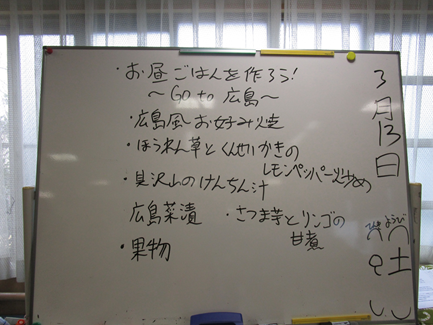 ・お昼ごはんを作ろう!
～Go to 広島～
・広島風お好み焼
・ほうれん草とくんせいかきの
レモンペッパー炒め
・具沢山のけんちん汁
広島菜漬 ・さつま芋とリンゴの
甘煮
・果物
3月13日
ようび
土